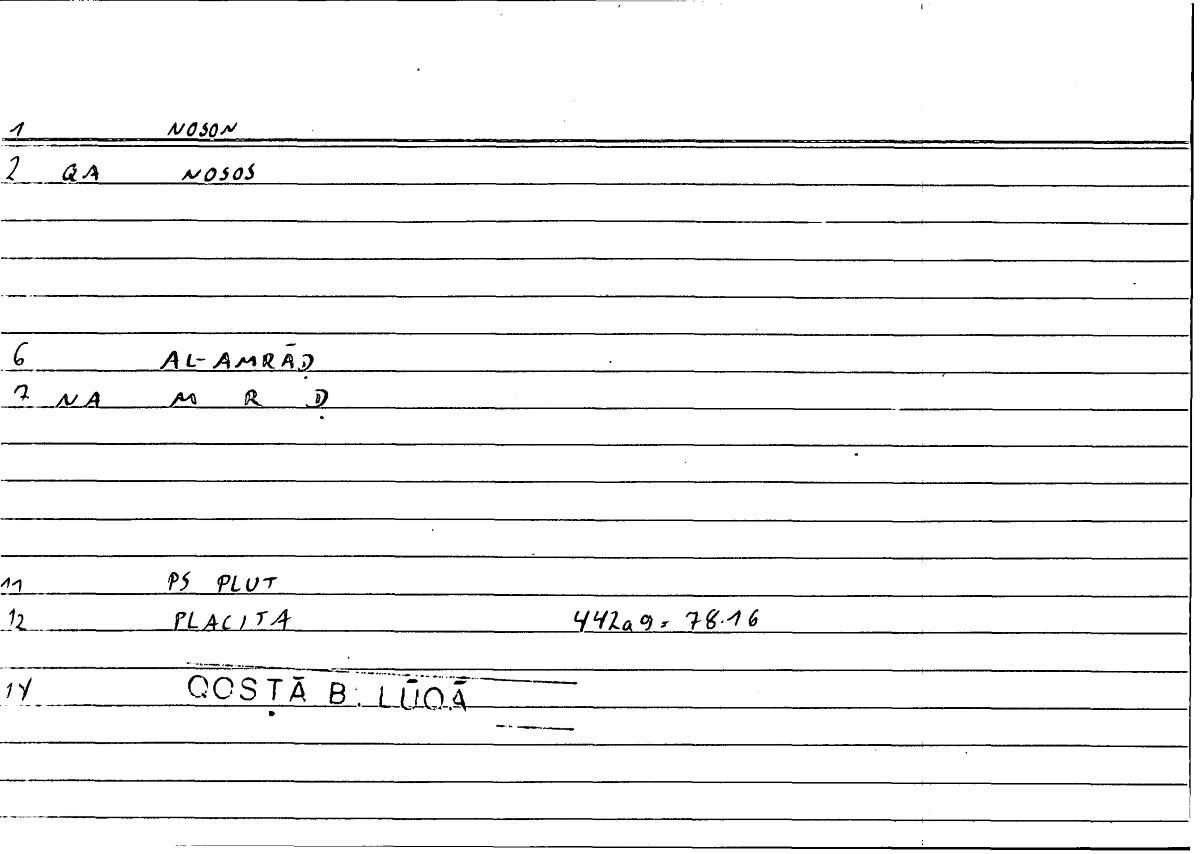 1 NOSON
2 QA NOSOS
6 AL-AMRĀḌ
7 NA M R Ḍ
11 PS PLUT
12 PLACITA 442a9 = 78.16
14 QOSṬĀ B. LŪQĀ